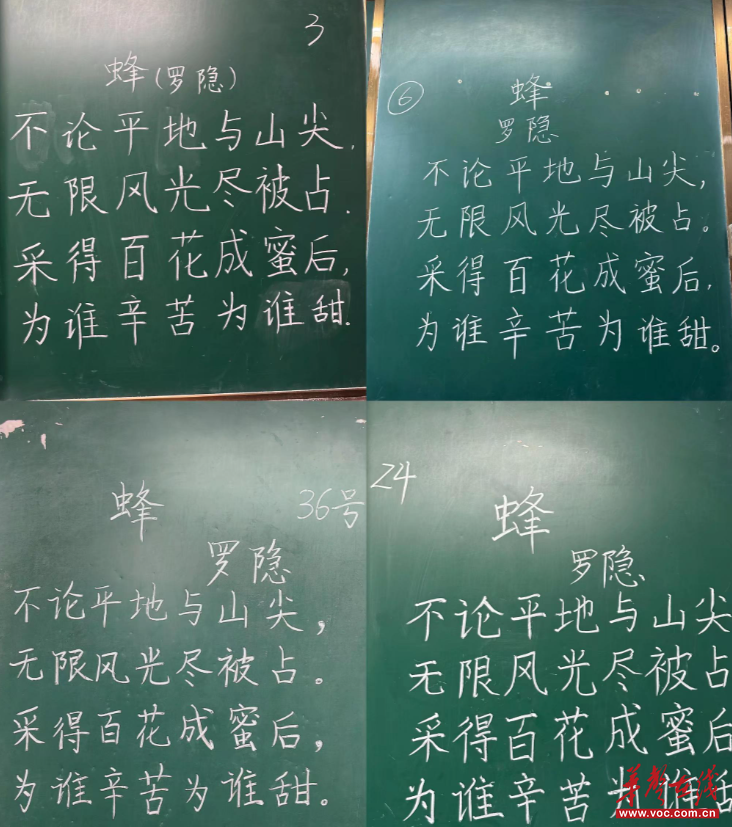 3
蜂(罗隐)
不论平地与山尖,
无限风光尽被占.
采得百花成蜜后,
为谁辛苦为谁甜.
6
蜂
罗隐
不论平地与山尖,
无限风光尽被占。
采得百花成蜜后,
为谁辛苦为谁甜。
蜂
36号
罗隐
不论平地与山尖,
无限风光尽被占。
采得百花成蜜后,
为谁辛苦为谁甜。
24
蜂
罗隐
不论平地与山尖
无限风光尽被占
采得百花成蜜后
为谁辛苦为谁甜
华声在线
www.voc.com.cn